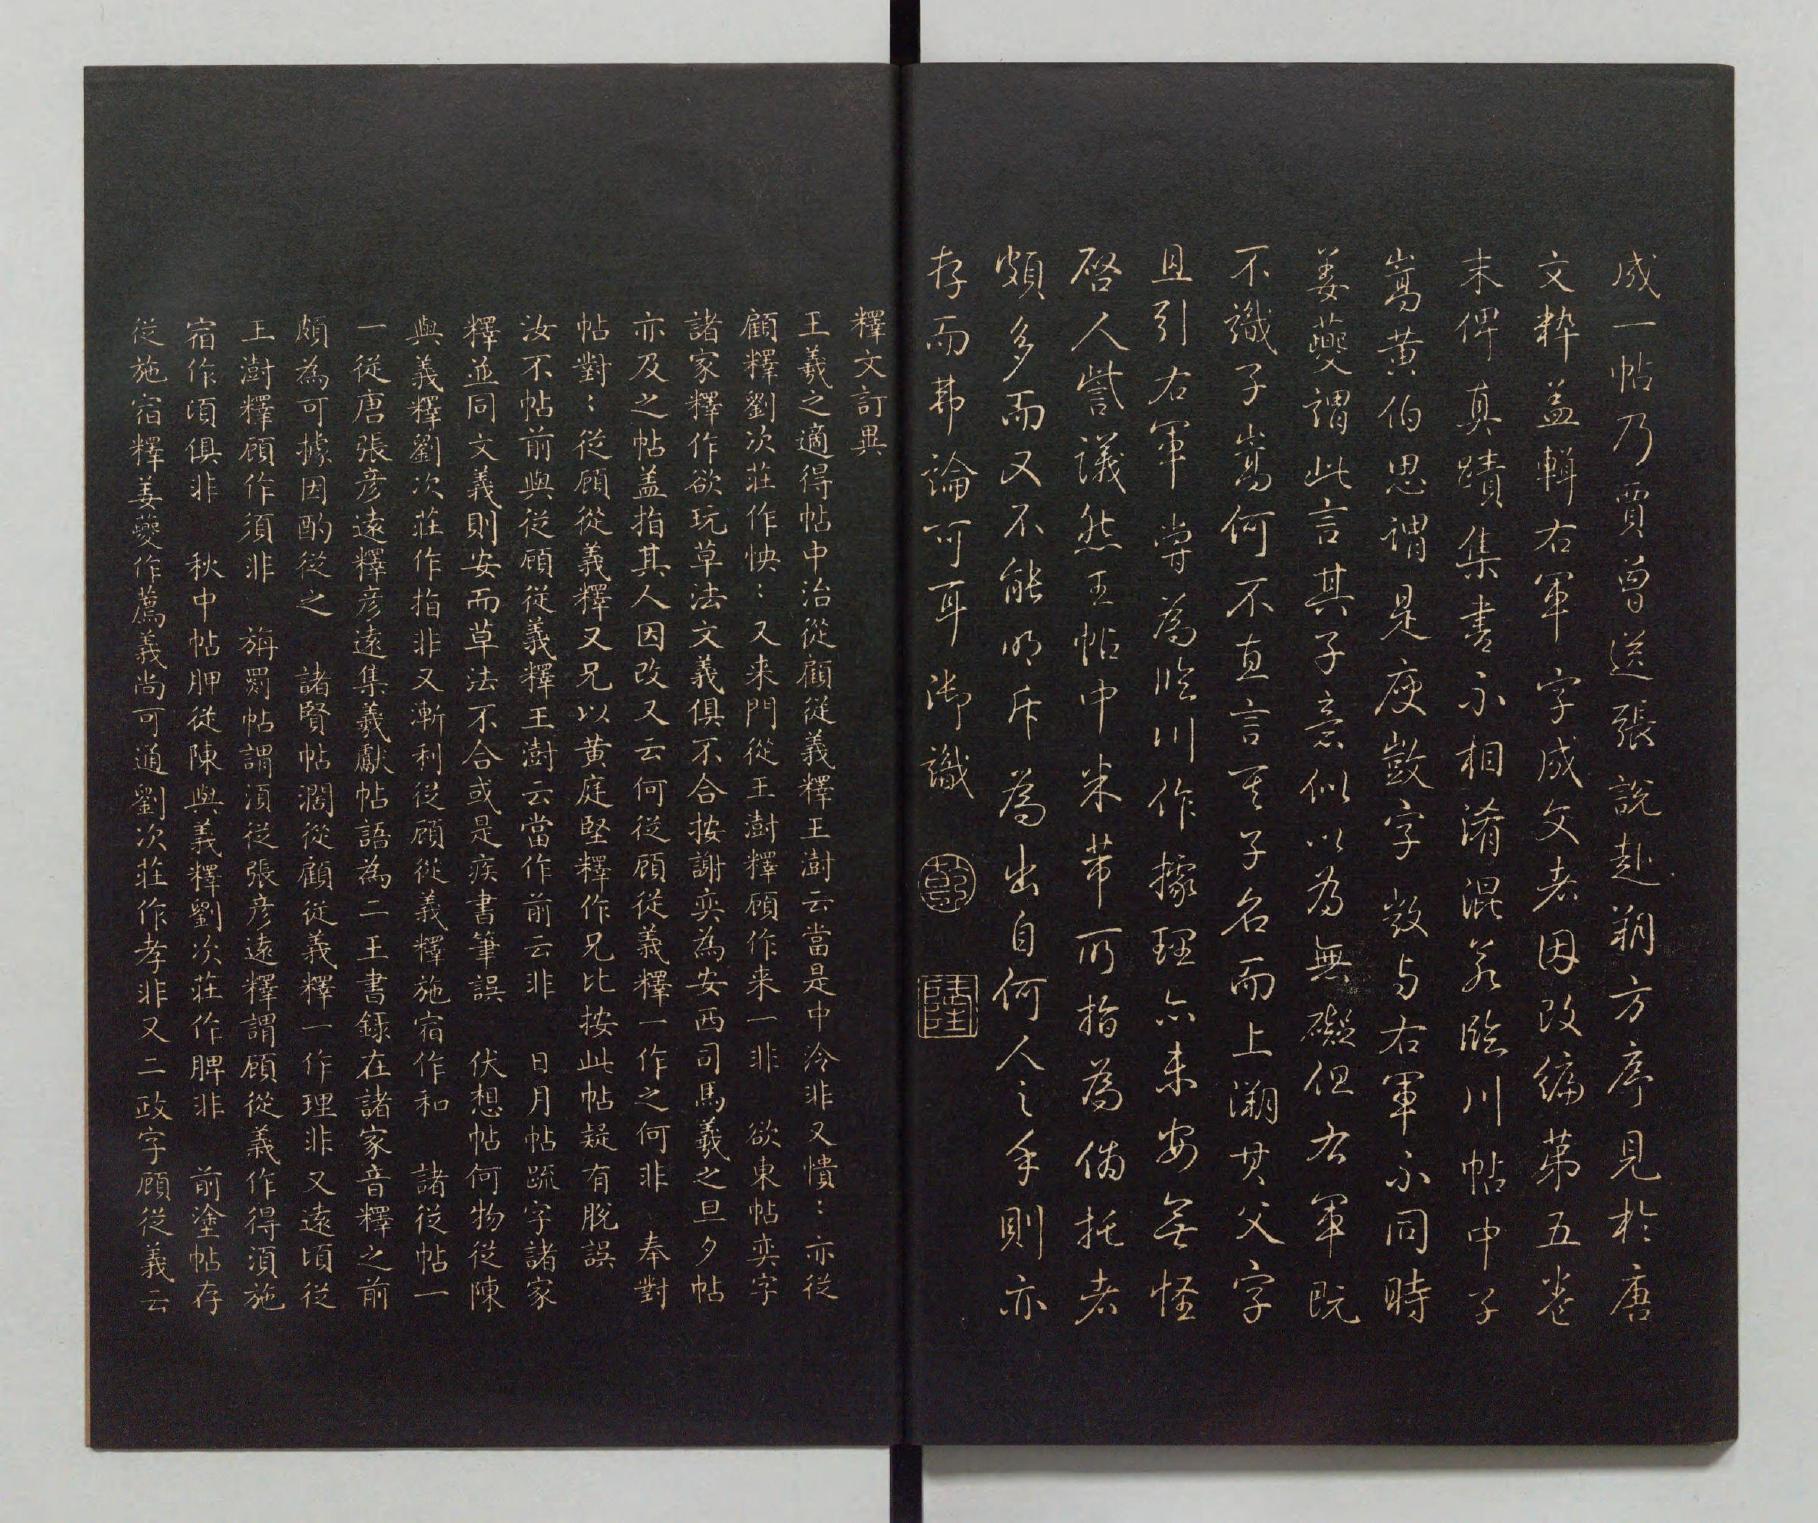 成一帖乃賈曾送張說赴朔方序見於唐
文粹蓋輯右軍字成文者因改編第五卷
末俾真蹟集書不相淆混若臨川帖中子
嵩黃伯思謂是庾敳字敳与右軍不同時
姜夔謂此言其子意似以為無礙但右軍既
不識子嵩何不直言其子名而上溯其父字
且引右軍嘗為臨川作據理亦未安無怪
啓人訾議然王帖中米芾所指為偽托者
頗多而又不能明斥為出自何人之手則亦
存而弗論可耳御識
釋文訂異
王羲之適得帖中治從顧從義釋王澍云當是中泠非又憒：亦從
顧釋劉次莊作怏：又来門從王澍釋顧作来一非　欲東帖奕字
諸家釋作欲玩草法文義俱不合按謝奕為安西司馬羲之旦夕帖
亦及之帖盖指其人因改又云何從顧從義釋一作之何非　奉對
帖對：從顧從義釋又兄以黃庭堅釋作兄比按此帖疑有脫誤
汝不帖前與從顧從義釋王澍云當作前云非　日月帖䟽字諸家
釋並同文義則安而草法不合或是疾書筆誤　伏想帖何物從陳
與義釋劉次莊作指非又漸利從顧從義釋施宿作和　諸從帖一
一從唐張彥遠釋彥遠集羲獻帖語為二王書錄在諸家音釋之前
頗為可據因酌從之　諸賢帖濶從顧從義釋一作理非又遠頃從
王澍釋顧作須非　旃罽帖謂須從張彥遠釋謂顧從義作得須施
宿作頃俱非　秋中帖胛從陳與義釋劉次莊作脾非　前塗帖存
從施宿釋姜夔作薦義尚可通劉次莊作孝非又二政字顧從義云